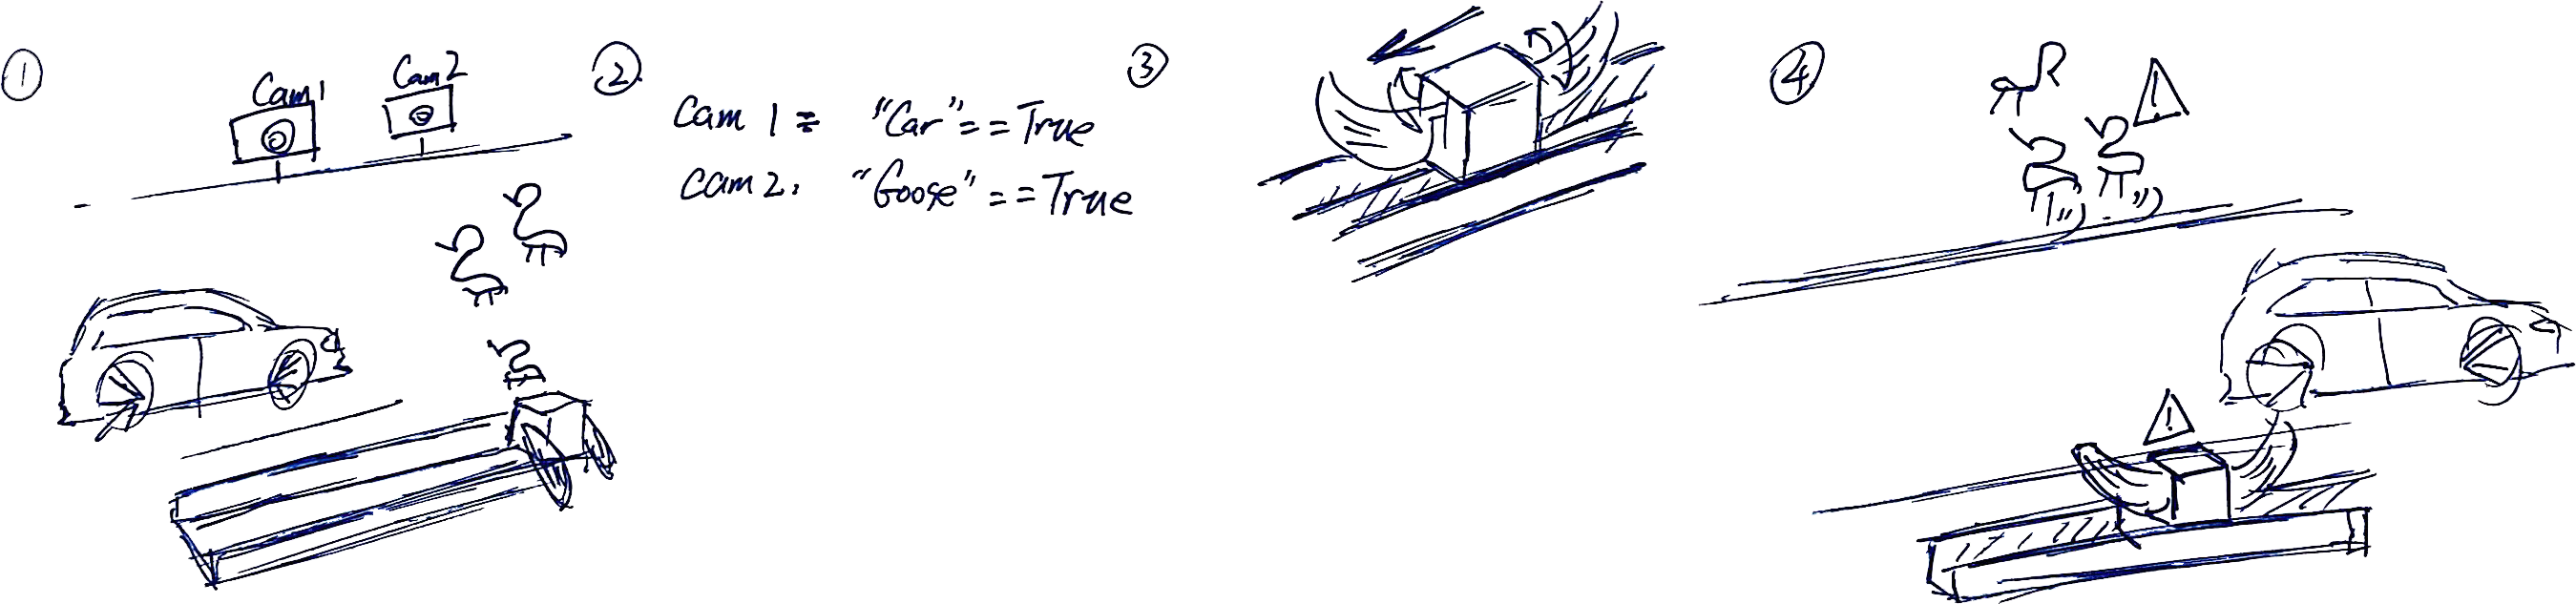 ①
Cam1
Cam2
②
Cam 1 = "Car" == True
Cam 2, "Goose" == True
③
④
!
!